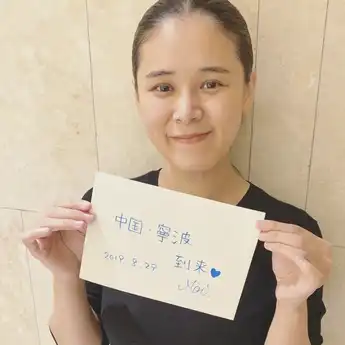 中国・寧波
2019.8.27 到来♥
Nao.